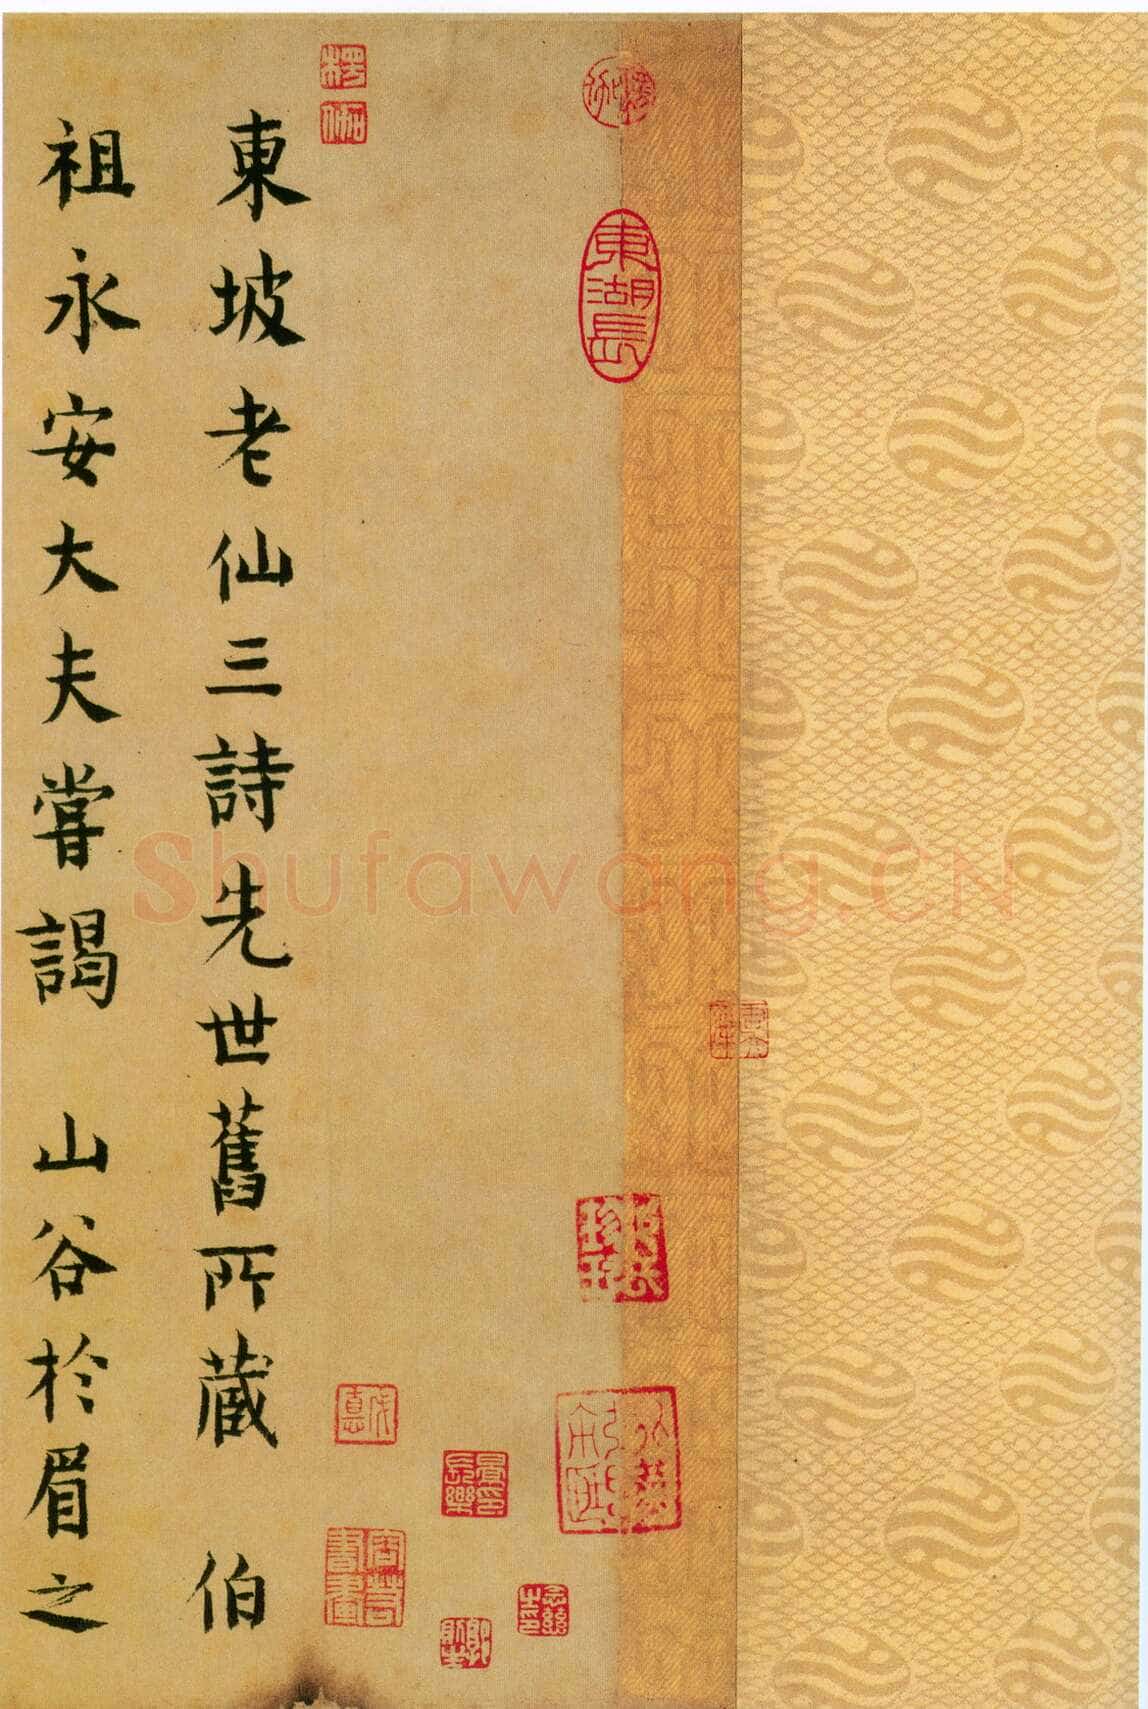 東坡老仙三詩先世舊所藏 伯
祖永安大夫嘗謁 山谷於眉之
東湖長
楞伽
Shufawang.CN